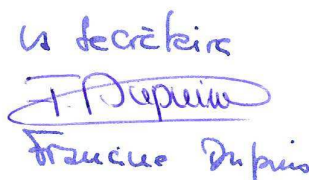 La Secrétaire
F. Dupuis
Francine Dupuis